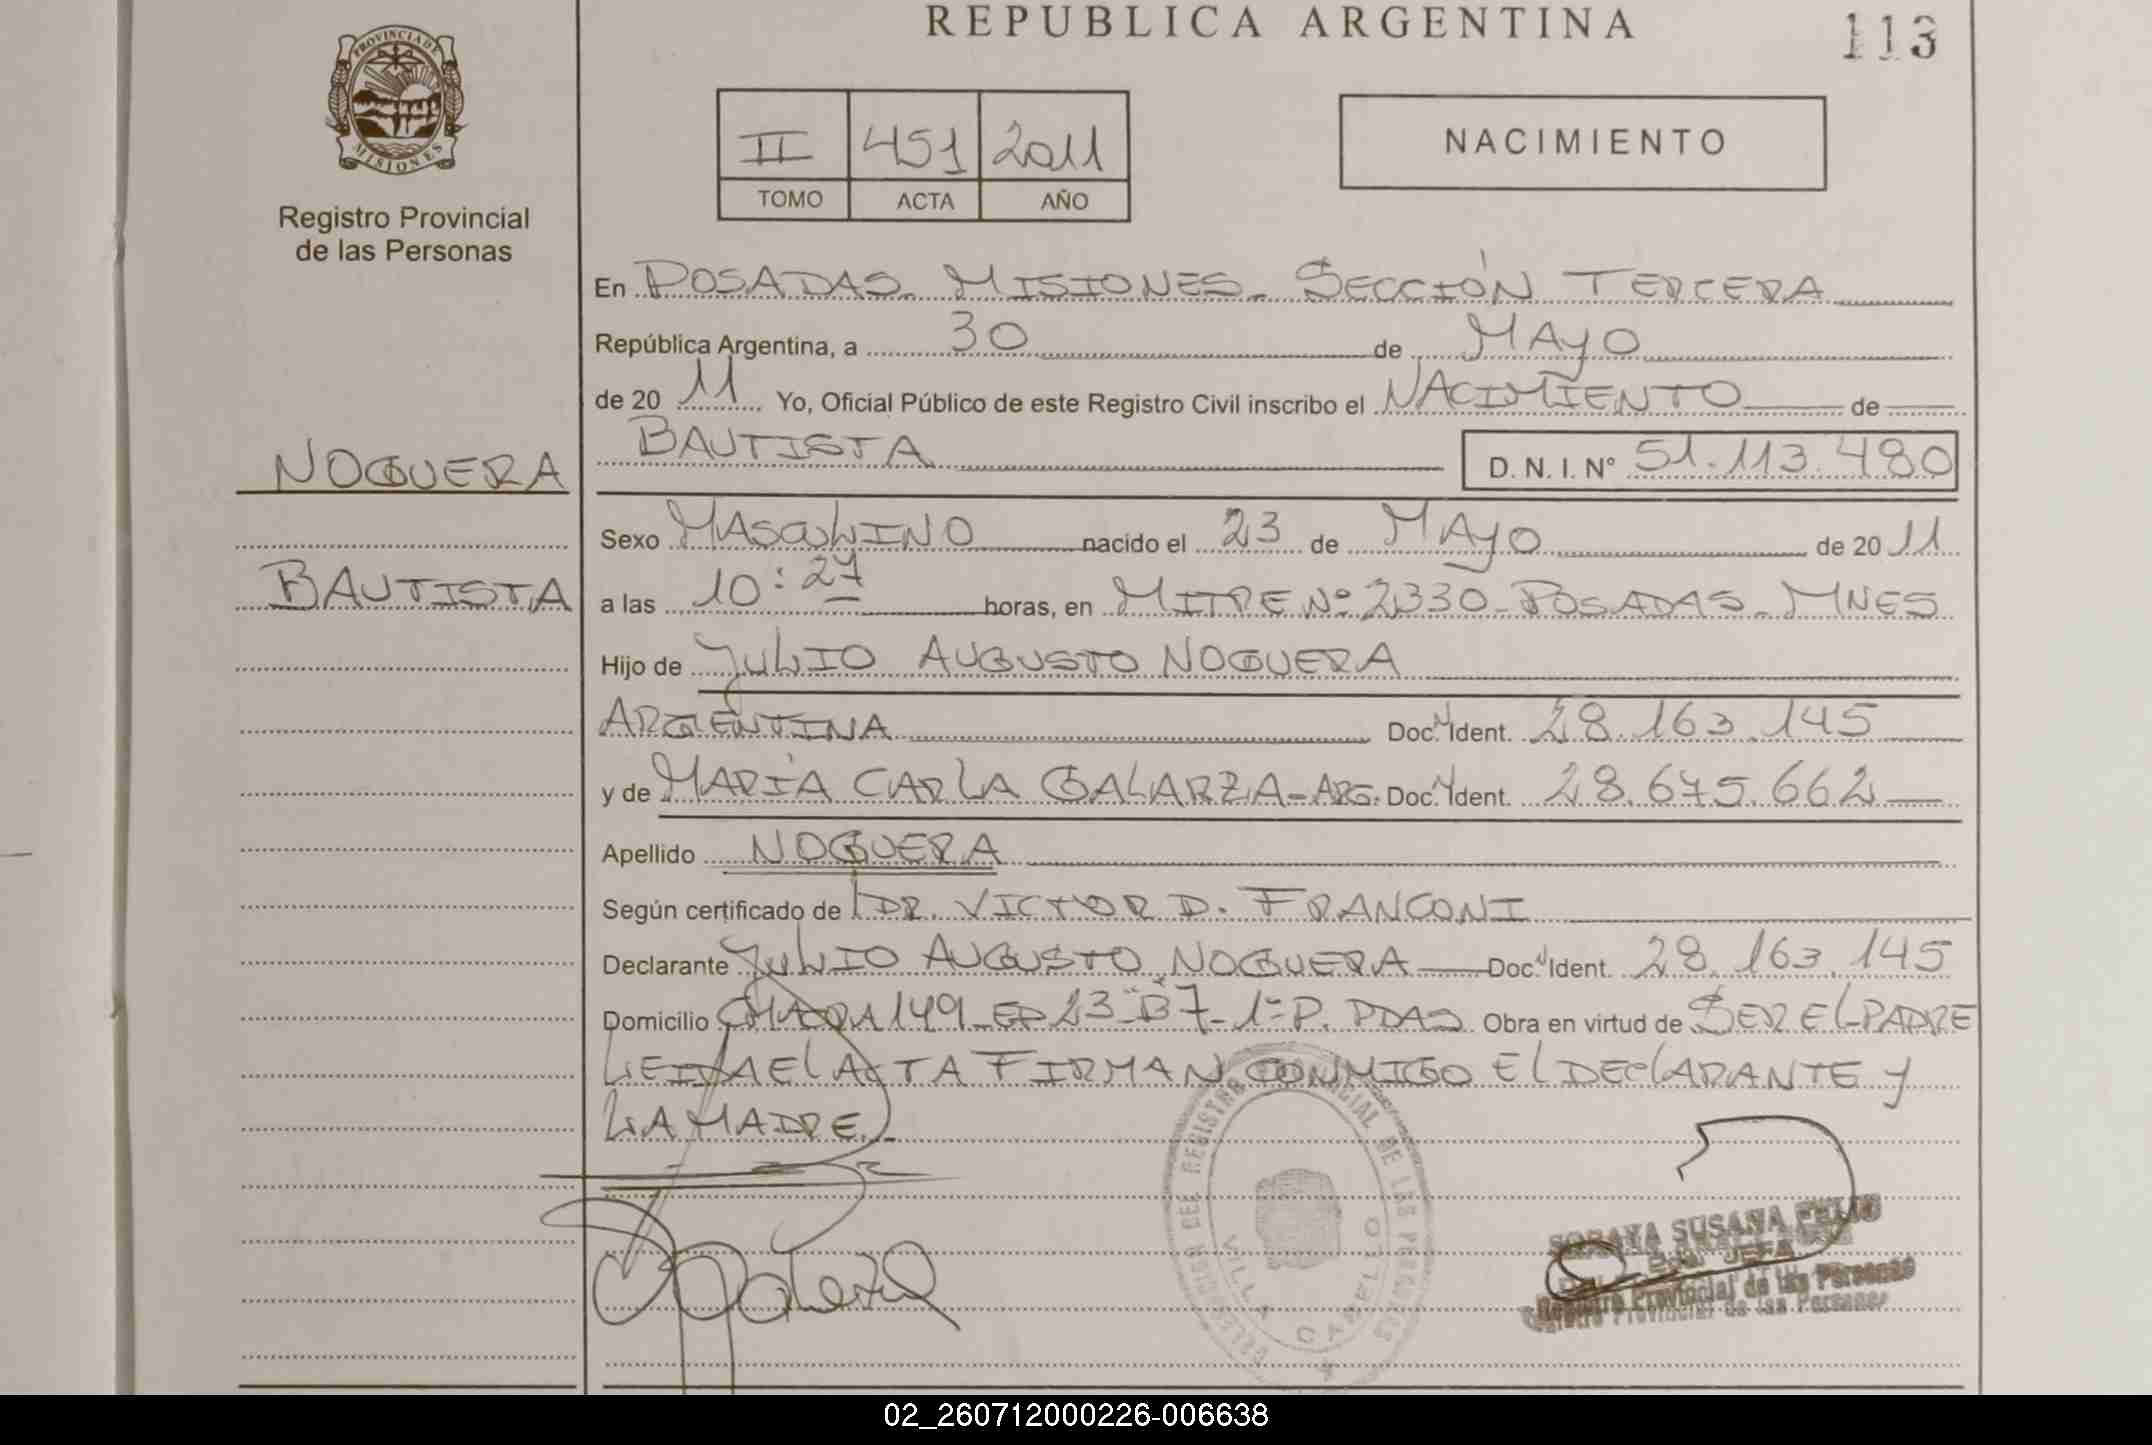 REPUBLICA ARGENTINA
113
PROVINCIA DE
MISIONES
Registro Provincial
de las Personas
II 451 2011
TOMO ACTA AÑO
NACIMIENTO
En POSADAS. MISIONES. SECCIÓN TERCERA
República Argentina, a 30 de MAYO
de 20 11 Yo, Oficial Público de este Registro Civil inscribo el NACIMIENTO de
BAUTISTA D. N. I. N° 51.113.480
NOGUERA
Sexo MASCULINO nacido el 23 de MAYO de 20 11
BAUTISTA
a las 10:27 horas, en MITRE Nº 2330 - POSADAS - MNES
Hijo de JULIO AUGUSTO NOGUERA
ARGENTINA Doc. Ident. 28.163.145
y de MARÍA CARLA GALARZA - ARG. Doc. Ident. 28.675.662
Apellido NOGUERA
Según certificado de DR. VICTOR D. FRANCONI
Declarante JULIO AUGUSTO NOGUERA Doc. Ident. 28.163.145
Domicilio CHACRA 149 - ED 23 "B" 7 - 1º P. PDAS Obra en virtud de SER EL PADRE
LEIDA EL ACTA FIRMAN CONMIGO EL DECLARANTE Y
LA MADRE.
DEL REGISTRO PROVINCIAL DE LAS PERSONAS
VILLA CABELLO
SORAYA SUSANA
JEFA
Registro Provincial de las Personas
02_260712000226-006638